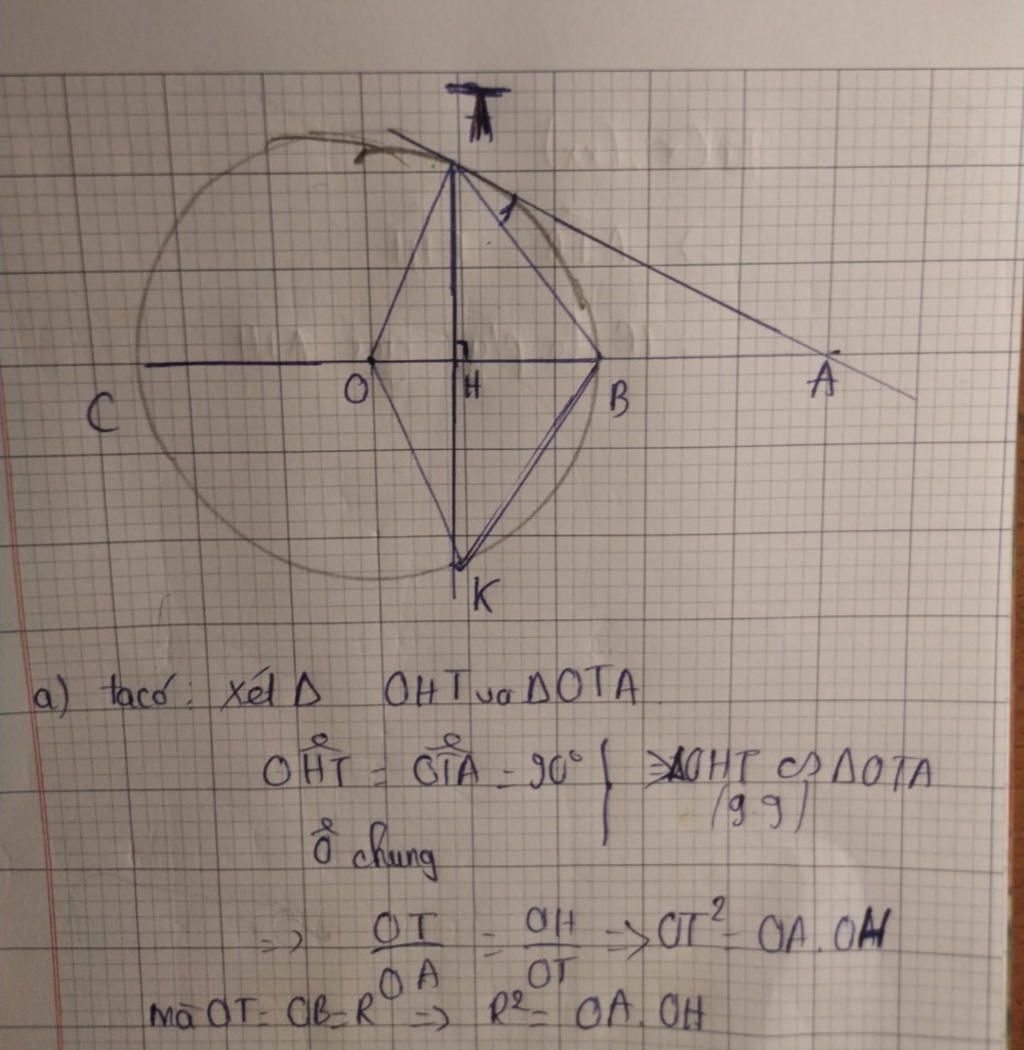 T
C
O
H
B
A
K
a) ta có: xét Δ OHT và ΔOTA
OĤT = OT̂A = 90° } => ΔOHT ∽ ΔOTA
Ô chung (g.g)
=> OT/OA = OH/OT => OT² = OA.OH
mà OT = OB = R => R² = OA.OH